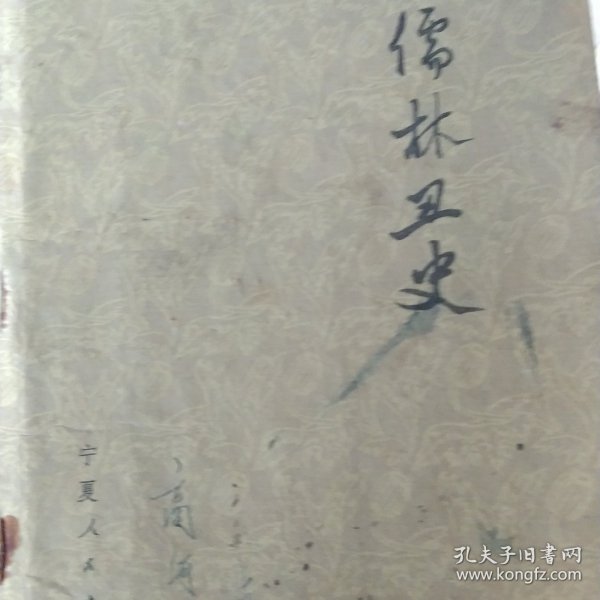 儒林丑史
宁夏人民
孔夫子旧书网
www.kongfz.com